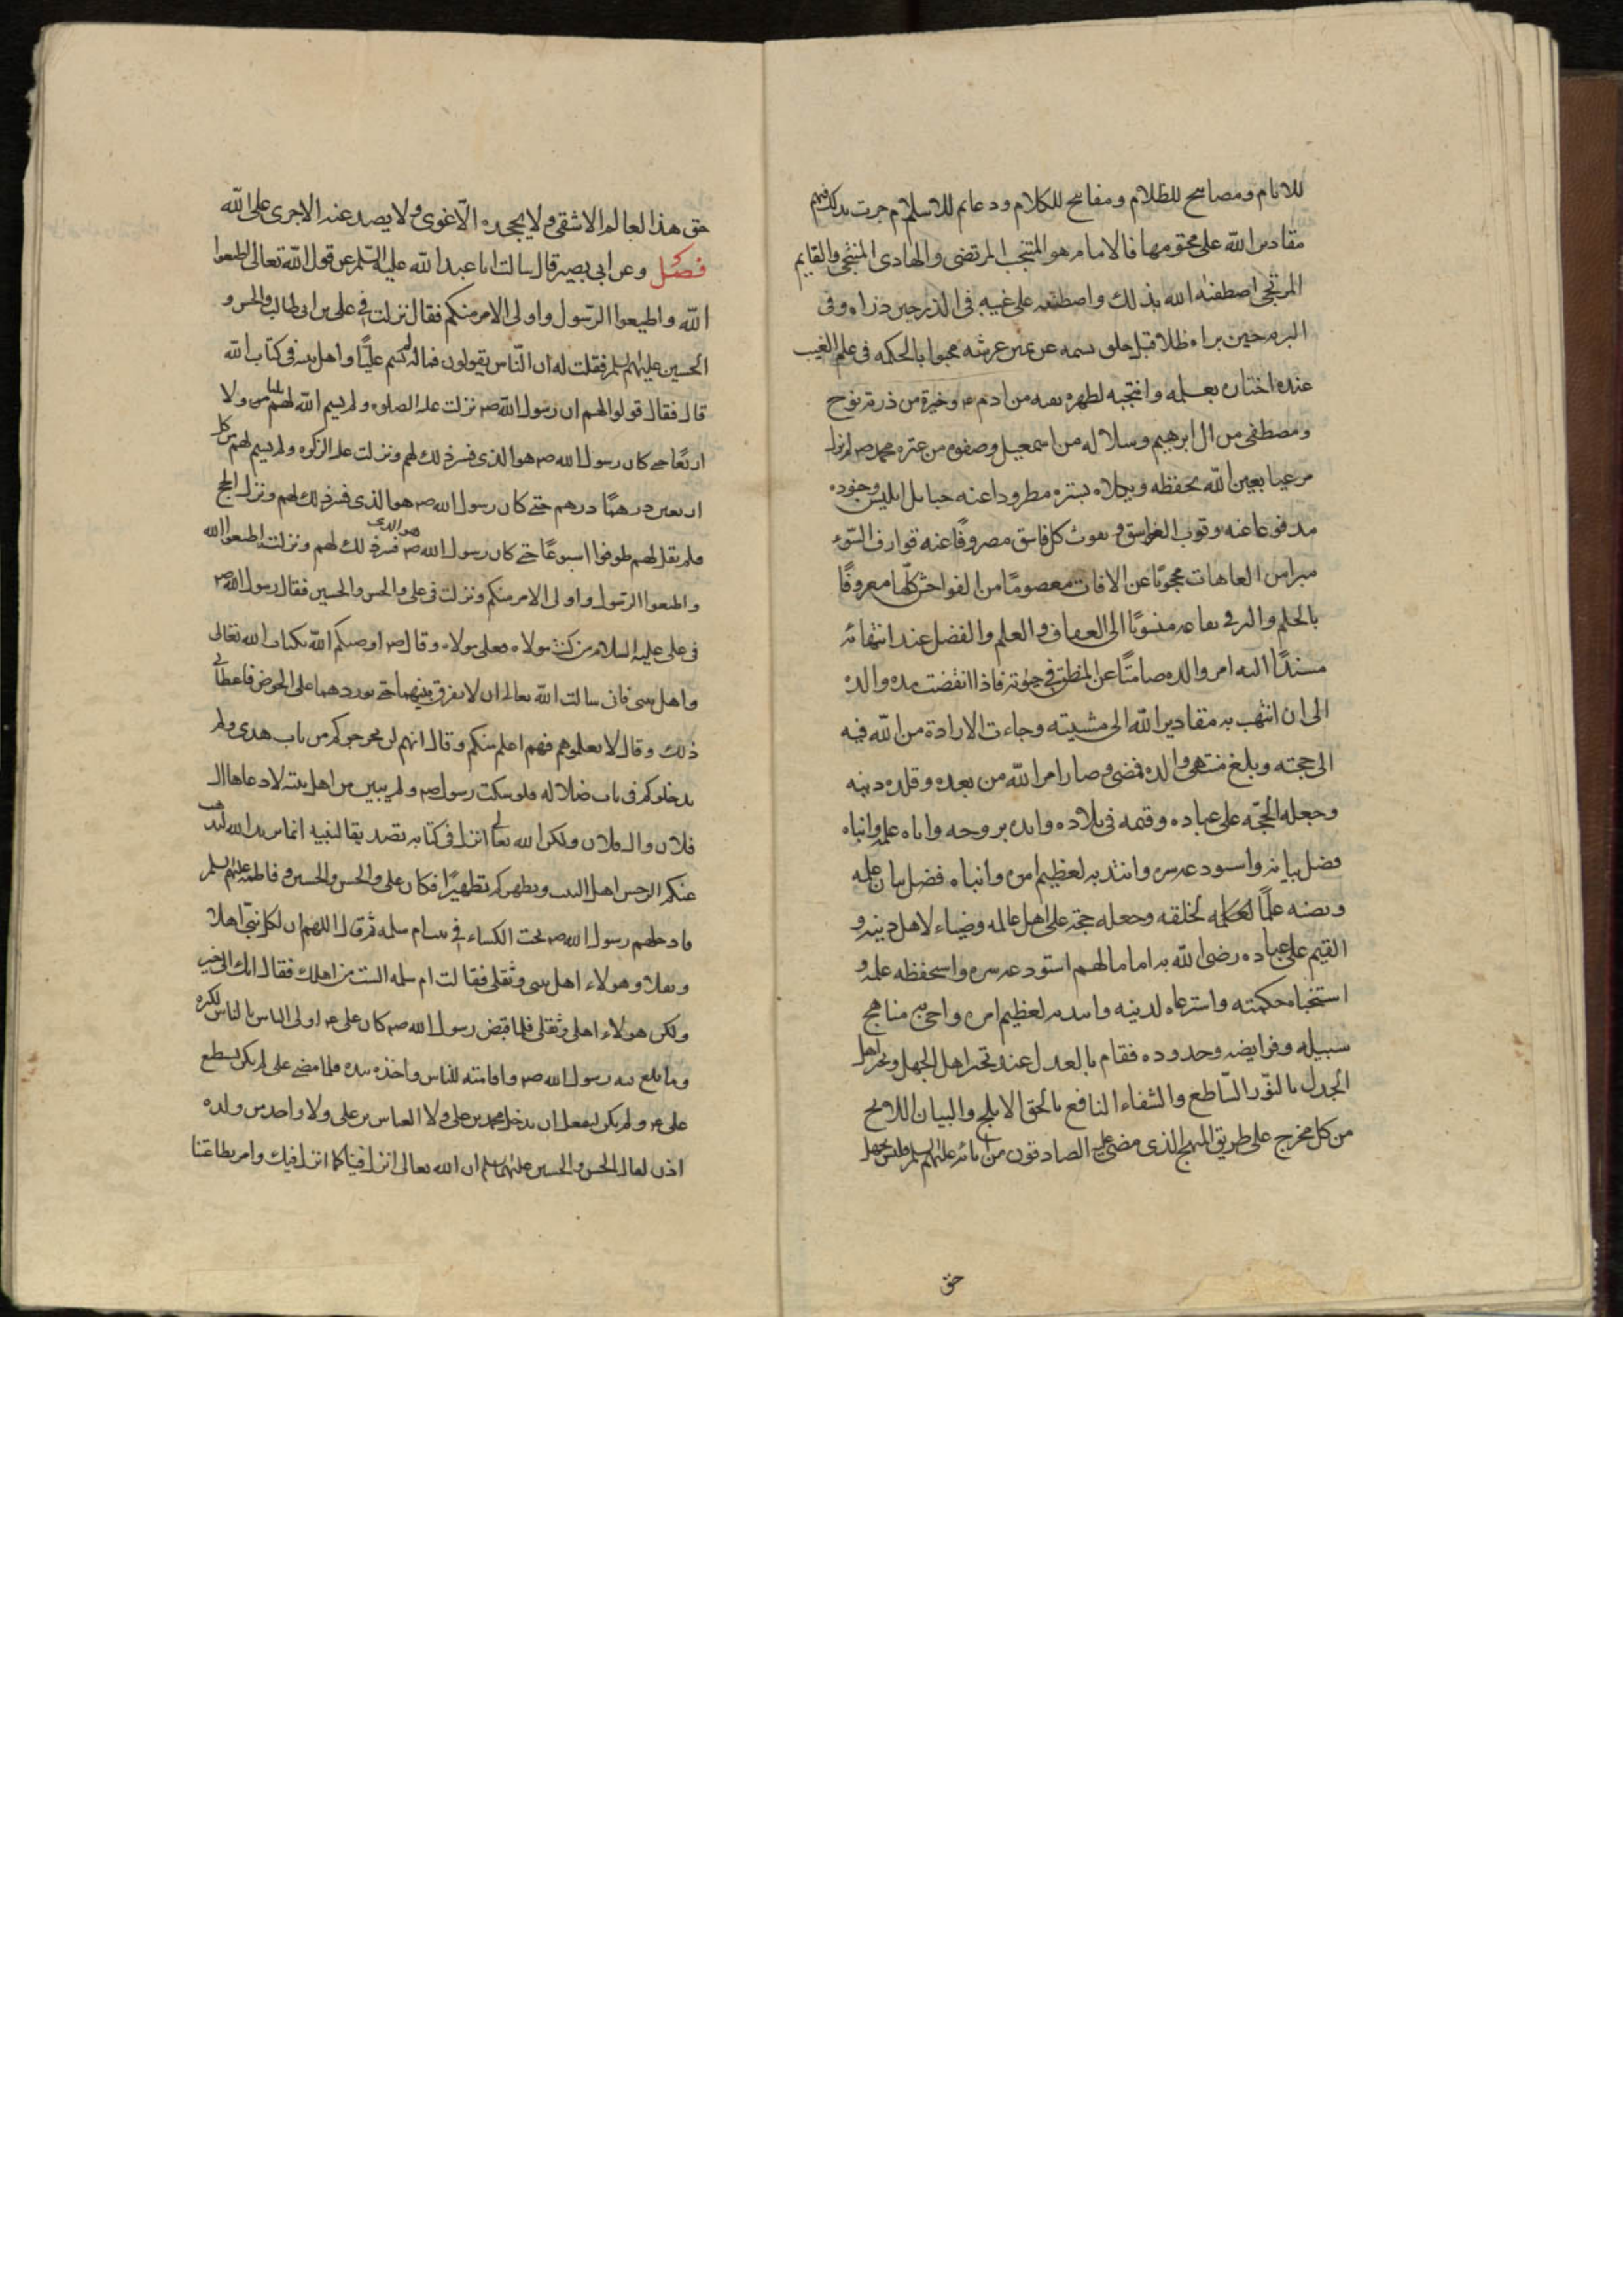 للانام ومصابيح للظلام ومفاتيح للكلام ودعايم للاسلام جرت بذلك فيهم
مقادير الله على محتومها فالامام هو المنتجب المرتضى والهادى المنتجى والقايم
المرتجى اصطفه الله بذلك واصطنعه على عينه فى الذر حين ذراه وفى
البريه حين براه ظلا قبل خلق نسمه عن يمين عرشه محبوا بالحكمه فى علم الغيب
عنده اختاره بعلمه وانتجبه لطهره بقيه من ادم ع وخيرة من ذرية نوح
ومصطفى من ال ابرهيم وسلاله من اسمعيل وصفوه من عتره محمد ص لم يزل
مرعيا بعين الله يحفظه ويكلاه بستره مطرودا عنه حبايل ابليس وجنوده
مدفوعا عنه وقوب الغواسق ونفوث كل فاسق مصروفًا عنه قوارف السّوء
مبرا من العاهات محجوبًا عن الافات معصومًا من الفواحش كلّها معروفًا
بالحلم والبر فى يفاعه منسوبًا الى العفاف والعلم والفضل عند انتهائه
مسندًا اليه امر والده صامتًا عن المنطق فى حيوته فاذا انقضت مده والده
الى ان انتهت به مقادير الله الى مشيته وجاءت الارادة من الله فيه
الى حجته وبلغ منتهى والده فمضى وصار امر الله من بعده وقلده دينه
وجعله الحجّه على عباده وقيمه فى بلاده وايده بروحه واتاه علمه وانباه
فضل بيانه واستودعه سره وانتدبه لعظيم امره وانباه فضل بيان علمه
ونصبه علمًا لخلقه وجعله حجة على اهل عالمه وضياء لاهل دينه و
القيم على عباده رضى الله به اماما لهم استودعه سره واستحفظه علمه و
استخباه حكمته واسترعاه لدينه وانتدبه لعظيم امره واحيى به مناهج
سبيله وفرايضه وحدوده فقام بالعدل عند تحير اهل الجهل وتحير اهل
الجدل بالنّور السّاطع والشفاء النافع بالحق الابلج والبيان اللايح
من كل مخرج على طريق المنهج الذى مضى عليه الصادقون من ابائه عليهم السلم فليس يجهل
حق
حق هذا العالم الا شقى ولا يجحده الّا غوى ولا يصد عنه الا جرى على الله
فصل وعن ابى بصير قال سالت ابا عبد الله عليه السّلم عن قول الله تعالى اطيعوا
الله واطيعوا الرّسول واولى الامر منكم فقال نزلت فى على بن ابى طالب والحسن و
الحسين عليهم السلم فقلت له ان النّاس يقولون فما له لم يسم عليًّا واهل بيته فى كتاب الله
قال فقال قولوا لهم ان رسول الله ص نزلت عليه الصلوه ولم يسم الله لهم ثلثا ولا
اربعًا حتى كان رسول الله ص هو الذى فسر ذلك لهم ونزلت عليه الزكوه ولم يسم لهم من كل
اربعين درهمًا درهم حتى كان رسول الله ص هو الذى فسر ذلك لهم ونزل الحج
فلم يقل لهم طوفوا اسبوعًا حتى كان رسول الله ص هو الذى فسر ذلك لهم ونزلت اطيعوا الله
واطيعوا الرسول واولى الامر منكم ونزلت فى على والحسن والحسين فقال رسول الله ص
فى على عليه السلام من كنت مولاه فعلى مولاه وقال ص اوصيكم الله بكتاب الله تعالى
واهل بيتى فانى سالت الله تعالى ان لا يفرق بينهما حتى يوردهما على الحوض فاعطانى
ذلك وقال لا تعلموهم فهم اعلم منكم وقال انهم لن يخرجوكم من باب هدى ولم
يدخلوكم فى باب ضلاله فلو سكت رسول ص ولم يبين من اهل بيته لادعاها ال
فلان وال فلان ولكن الله تعالى انزل فى كتابه تصديقا لنبيه انما يريد الله ليذهب
عنكم الرجس اهل البيت ويطهركم تطهيرًا فكان على والحسن والحسين وفاطمه عليهم السلم
فادخلهم رسول الله ص تحت الكساء فى بيت ام سلمه ثم قال اللهم ان لكل نبى اهلا
وثقلا وهولاء اهل بيتى وثقلى فقالت ام سلمه الست من اهلك فقال انك الى خير
ولكن هولاء اهلى وثقلى فلما قبض رسول الله ص كان على ع اولى الناس بالناس لكثره
وما بلغ فيه رسول الله ص واقامته للناس واخذه بيده فلما مضى على لم يكن يستطيع
على ع ولم يكن ليفعل ان يدخل محمد بن على ولا العباس بن على ولا واحد من ولده
اذن لقال الحسن والحسين عليهما السلم ان الله تعالى انزل فينا كما انزل فيك وامر بطاعتنا